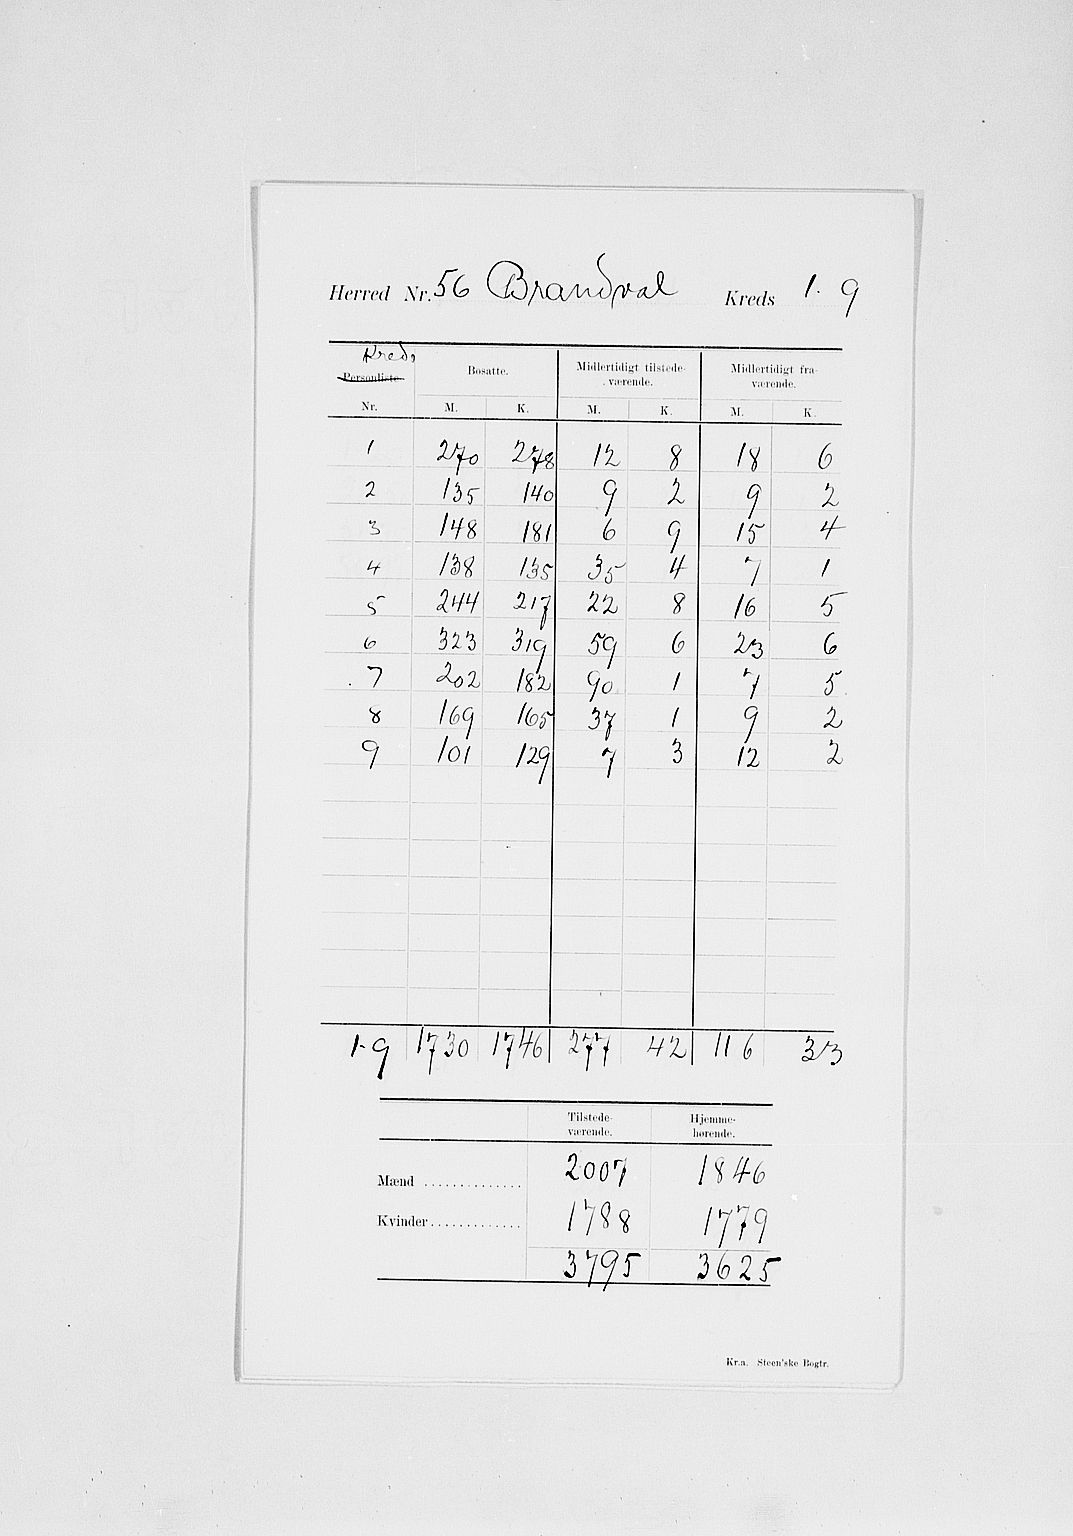 Herred Nr. 56 Brandval Kreds 1-9
Kreds
Personliste Bosatte. Midlertidigt tilstede- Midlertidigt fra-
værende. værende.
Nr. M. K. M. K. M. K.
1 270 278 12 8 18 6
2 135 140 9 2 9 2
3 148 181 6 9 15 4
4 138 135 35 4 7 1
5 244 217 22 8 16 5
6 323 319 59 6 23 6
7 202 182 90 1 7 5
8 169 165 37 1 9 2
9 101 129 7 3 12 2
1-9 1730 1746 277 42 116 33
Tilstede- Hjemme-
værende. hørende.
Mænd .............. 2007 1846
Kvinder ............. 1788 1779
3795 3625
Kr.a. Steen'ske Bogtr.